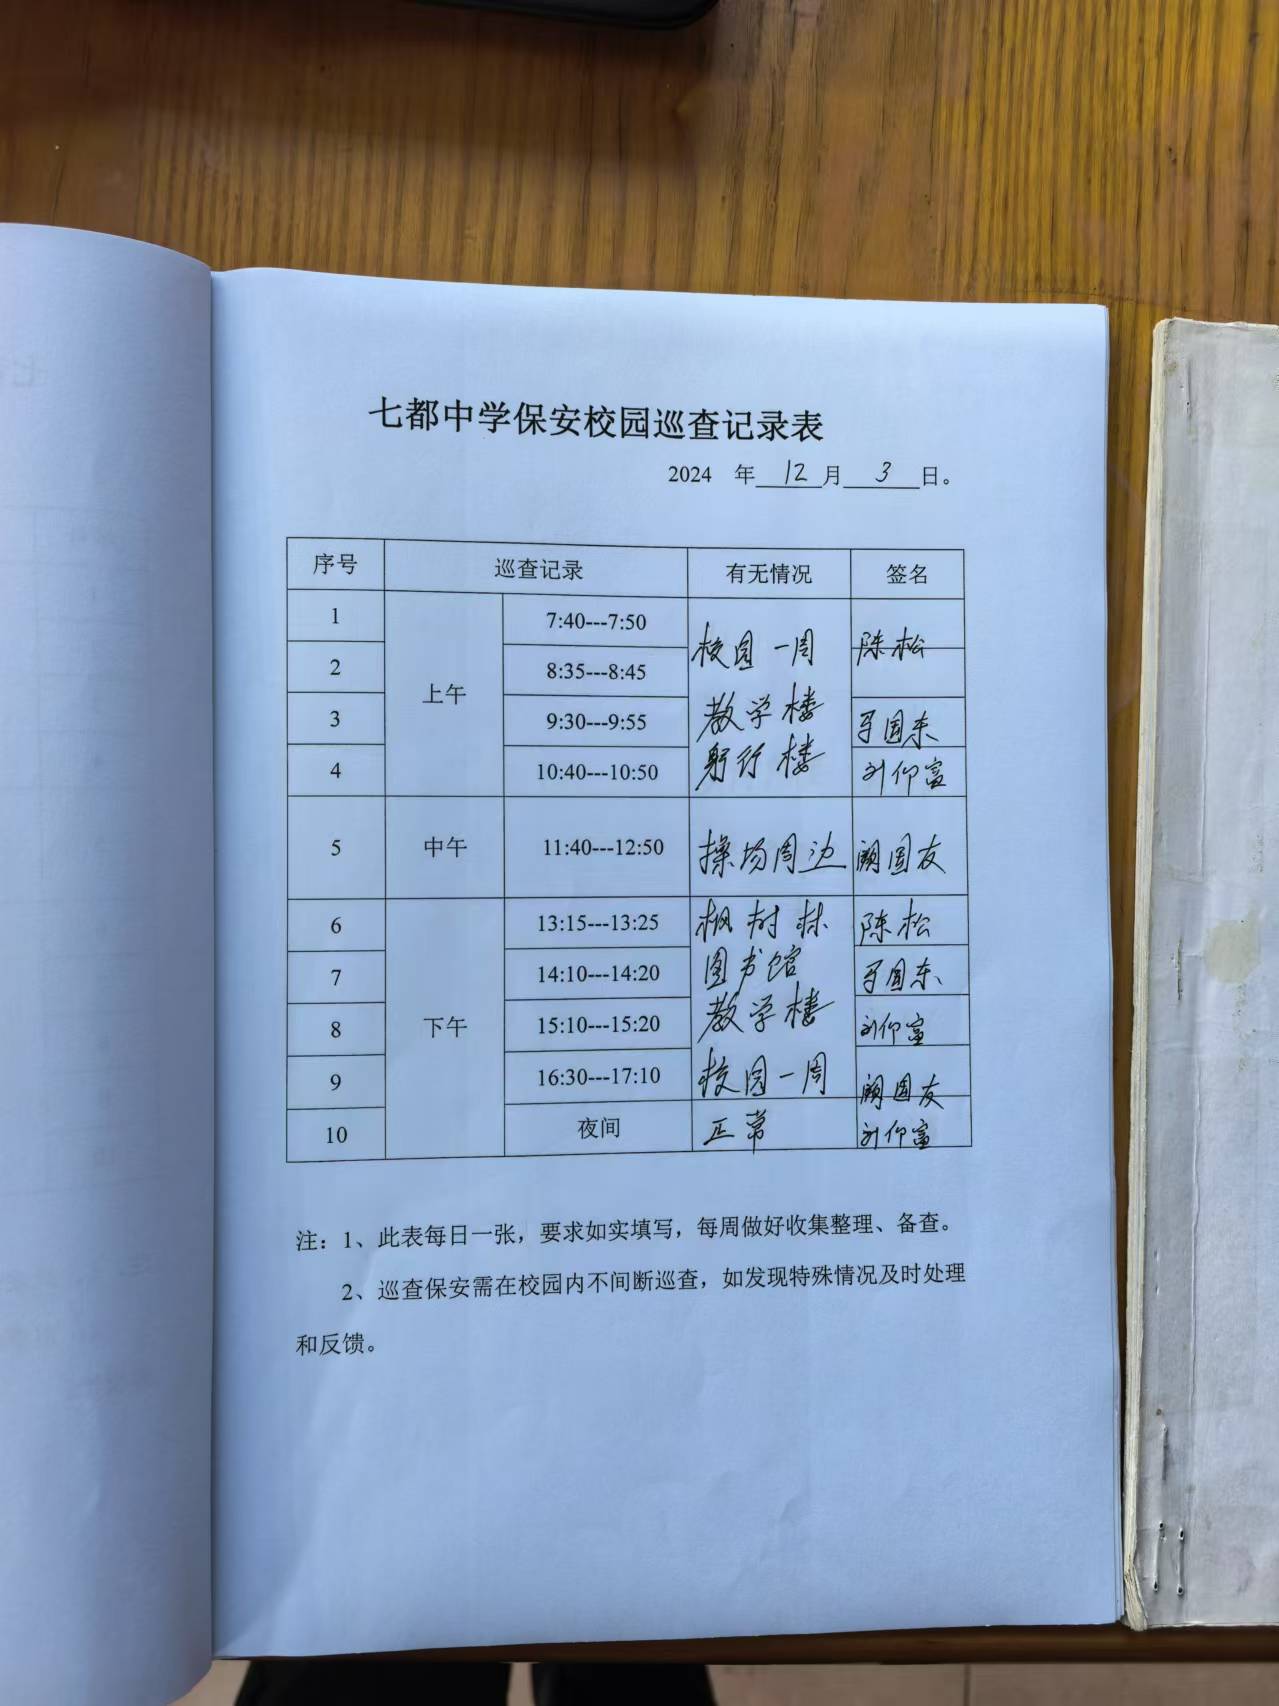 七都中学保安校园巡查记录表
2024 年 12 月 3 日。
序号 巡查记录 有无情况 签名
1 上午 7:40---7:50 校园一周 陈松
2 8:35---8:45
3 9:30---9:55 教学楼 国东
4 10:40---10:50 躬行楼 刘仰富
5 中午 11:40---12:50 操场周边 阙国友
6 下午 13:15---13:25 枫树林 陈松
7 14:10---14:20 图书馆 国东
8 15:10---15:20 教学楼 刘仰富
9 16:30---17:10 校园一周 阙国友
10 夜间 正常 刘仰富
注：1、此表每日一张，要求如实填写，每周做好收集整理、备查。
2、巡查保安需在校园内不间断巡查，如发现特殊情况及时处理
和反馈。